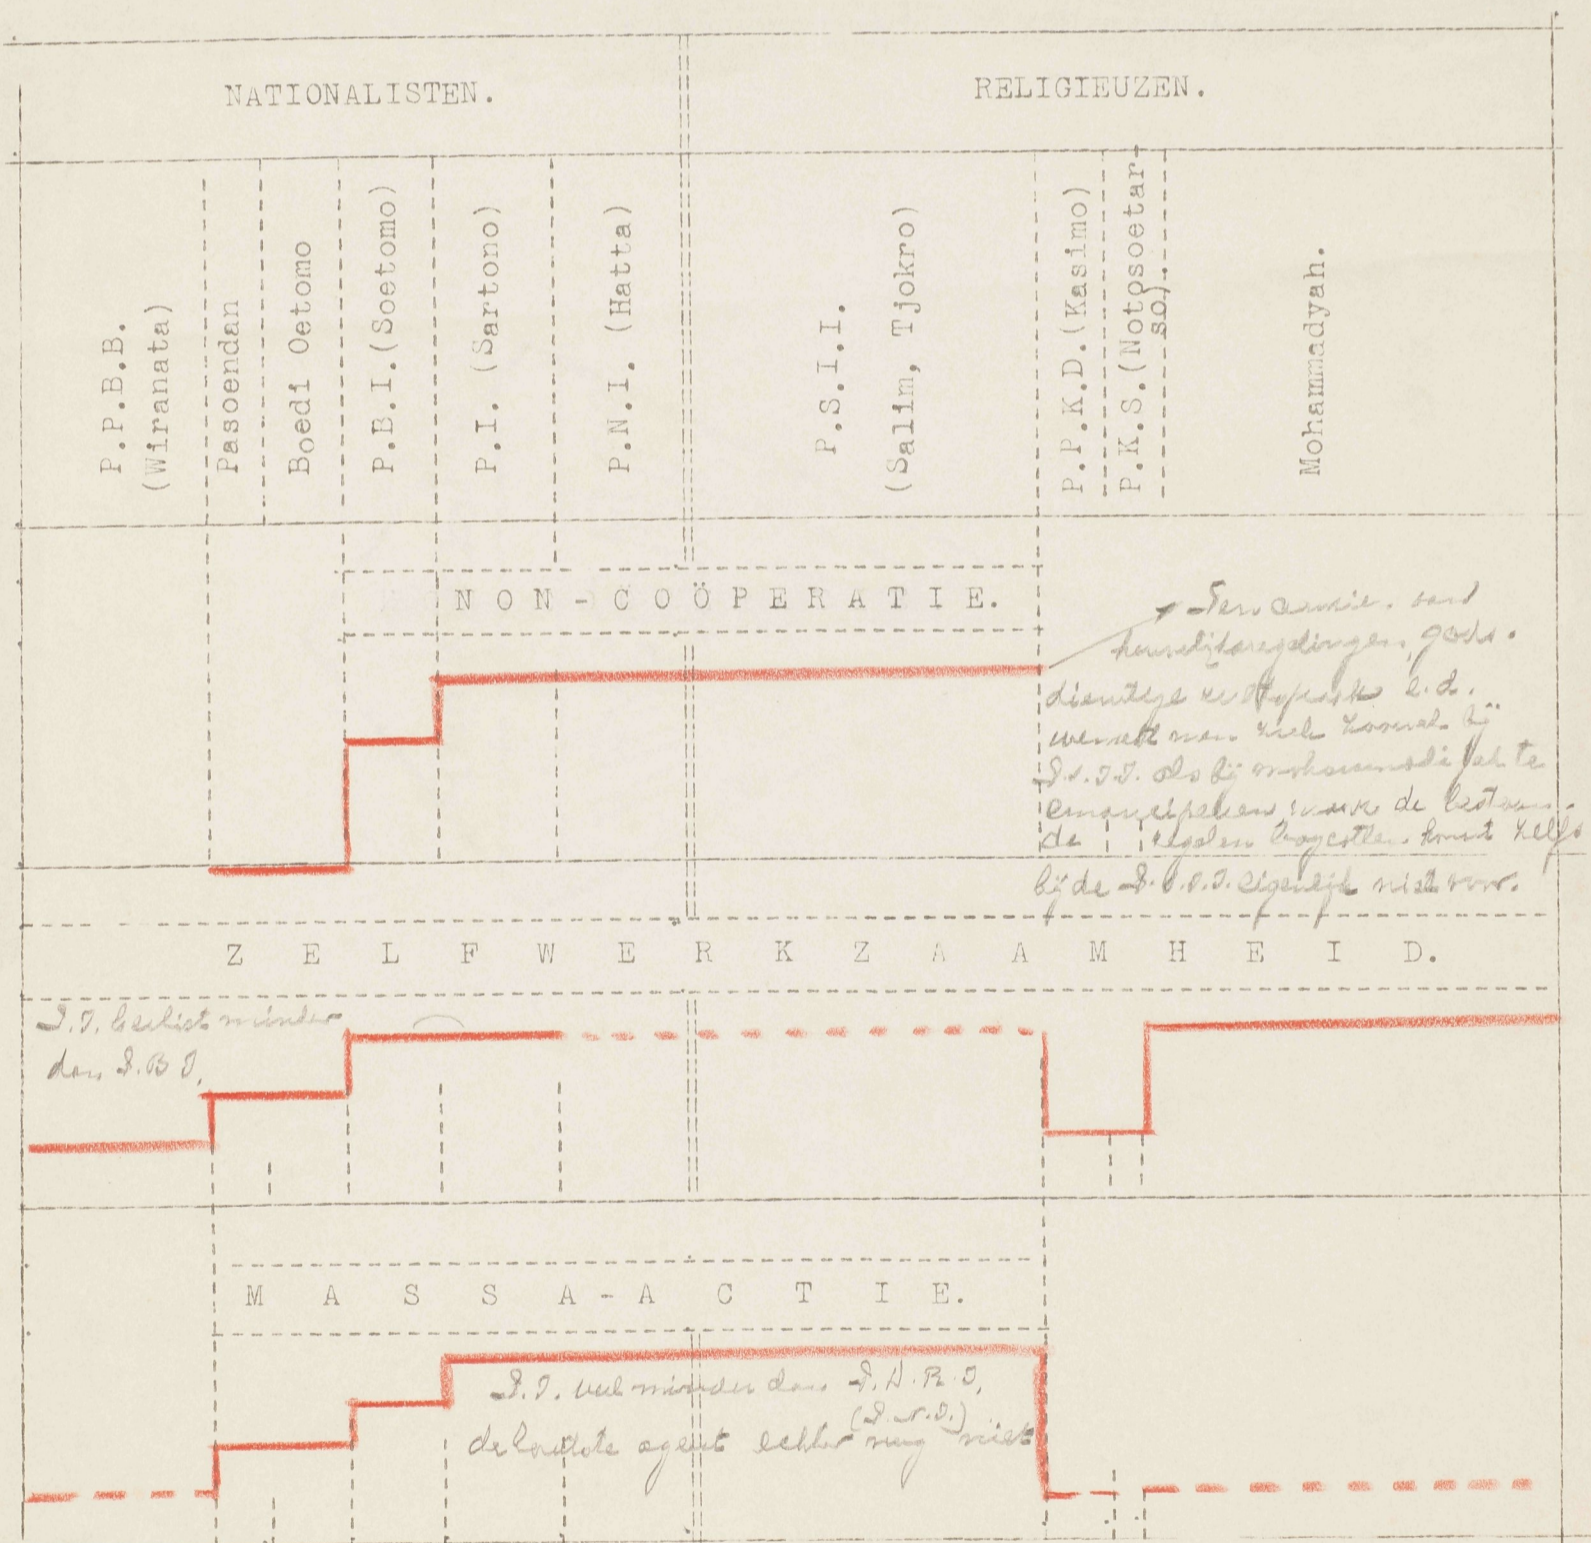 NATIONALISTEN.
RELIGIEUZEN.
P.P.B.B.
(Wiranata)
Pasoendan
Boedi Oetomo
P.B.I.(Soetomo)
P.I. (Sartono)
P.N.I. (Hatta)
P.S.I.I.
(Salim, Tjokro)
P.P.K.D.(Kasimo)
P.K.S.(Notosoetar-
so).
Mohammadyah.
NON-COÖPERATIE.
Ten aanzien van
huwelijksregelingen, gods.
dienstige e.d.
man zich zoowel bij
P.S.I.I. als bij te
emancipeeren, de bestaan-
de regelen boycotten komt zelfs
bij de eigenlijk niet voor.
ZELFWERKZAAMHEID.
P.I. beslist minder
dan P.B I.
MASSA-ACTIE.
P.I. veel minder dan P.N.R.I.
(P.N.I.)
de laatste ageert echter nog niet